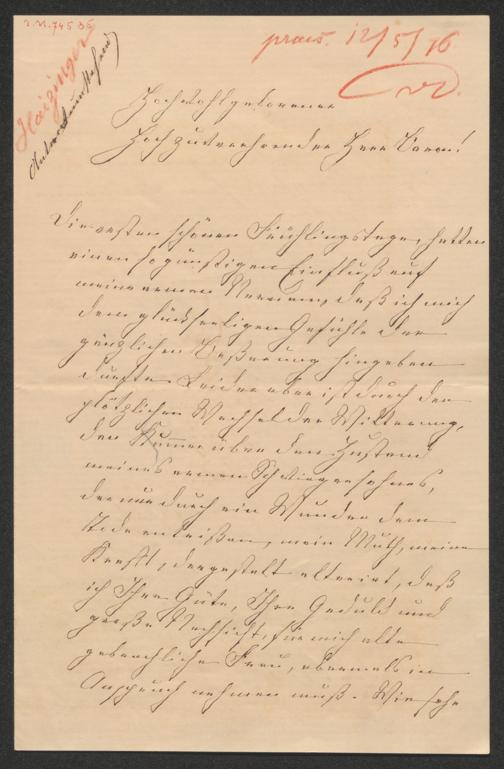 praes. 12/5/76
Haizinger
Hochwohlgeborener
Hochzuverehrender Herr Baron!
Die ersten schönen Frühlingstage, hatten
einen so günstigen Einfluß auf
meine armen Nerven, daß ich mich
dem glückseeligen Gefühle der
gänzlichen Beßerung hingeben
durfte. Leider aber ist durch den
plötzlichen Wechsel der Witterung,
den Kummer über den Zustand
meines armen Schwiegersohnes,
der nur durch ein Wunder dem
Tode entrißen, mein Muth, meine
Kraft, dergestalt alterirt, daß
ich Ihre Güte, Ihre Geduld und
große Nachsicht, für mich alte
gebrechliche Frau, abermals in
Anspruch nehmen muß. Wie sehr